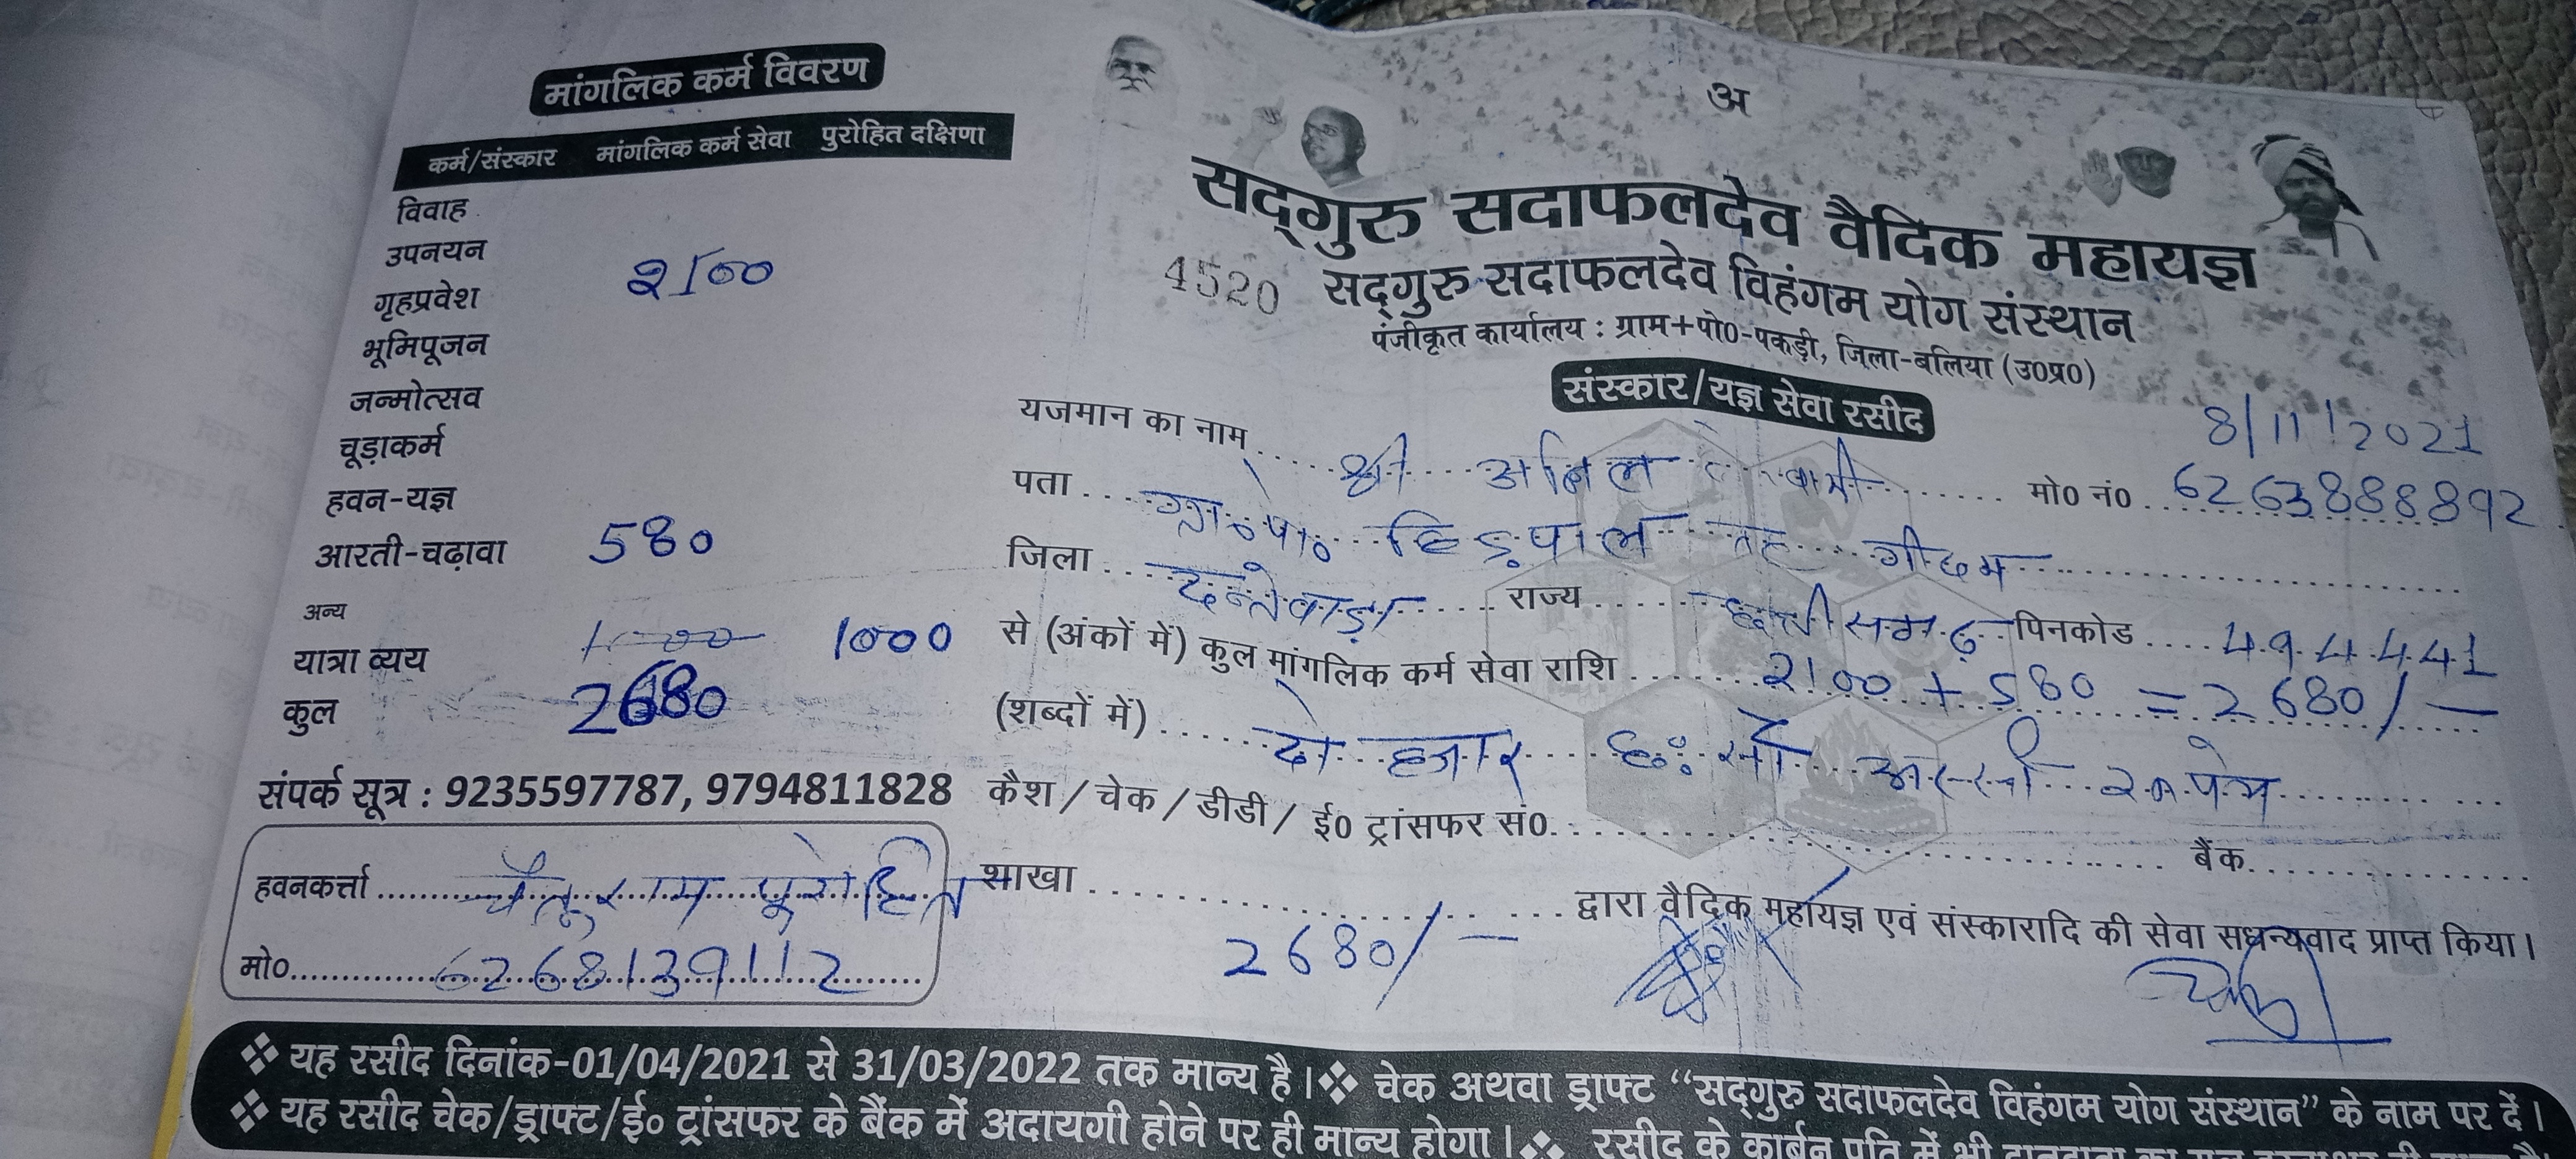 मांगलिक कर्म विवरण
कर्म/संस्कार मांगलिक कर्म सेवा पुरोहित दक्षिणा
विवाह
उपनयन
गृहप्रवेश 2100
भूमिपूजन
जन्मोत्सव
चूड़ाकर्म
हवन-यज्ञ
आरती-चढ़ावा 580
अन्य
यात्रा व्यय 1000 1000
कुल 2680
संपर्क सूत्र : 9235597787, 9794811828
हवनकर्त्ता चैतूराम पुरोहित
मो0 6268139112
अ
सद्गुरु सदाफलदेव वैदिक महायज्ञ
4520 सद्गुरु सदाफलदेव विहंगम योग संस्थान
पंजीकृत कार्यालय : ग्राम+पो0-पकड़ी, जिला-बलिया (उ0प्र0)
संस्कार/यज्ञ सेवा रसीद
8/11/2021
यजमान का नाम श्री अनिल मो0 नं0 6263888892
पता ग्रा०पो० हिड़पाल तह गीदम
जिला दन्तेवाड़ा राज्य छत्तीसगढ़ पिनकोड 494441
से (अंकों में) कुल मांगलिक कर्म सेवा राशि 2100 + 580 = 2680/-
(शब्दों में) दो हजार छः सौ अस्सी रूपये
कैश / चेक / डीडी / ई0 ट्रांसफर सं0 बैंक
शाखा द्वारा वैदिक महायज्ञ एवं संस्कारादि की सेवा सधन्यवाद प्राप्त किया।
2680/-
❖ यह रसीद दिनांक-01/04/2021 से 31/03/2022 तक मान्य है। ❖ चेक अथवा ड्राफ्ट “सद्गुरु सदाफलदेव विहंगम योग संस्थान” के नाम पर दें।
❖ यह रसीद चेक/ड्राफ्ट/ई० ट्रांसफर के बैंक में अदायगी होने पर ही मान्य होगा। ❖ रसीद के कार्बन प्रति में भी